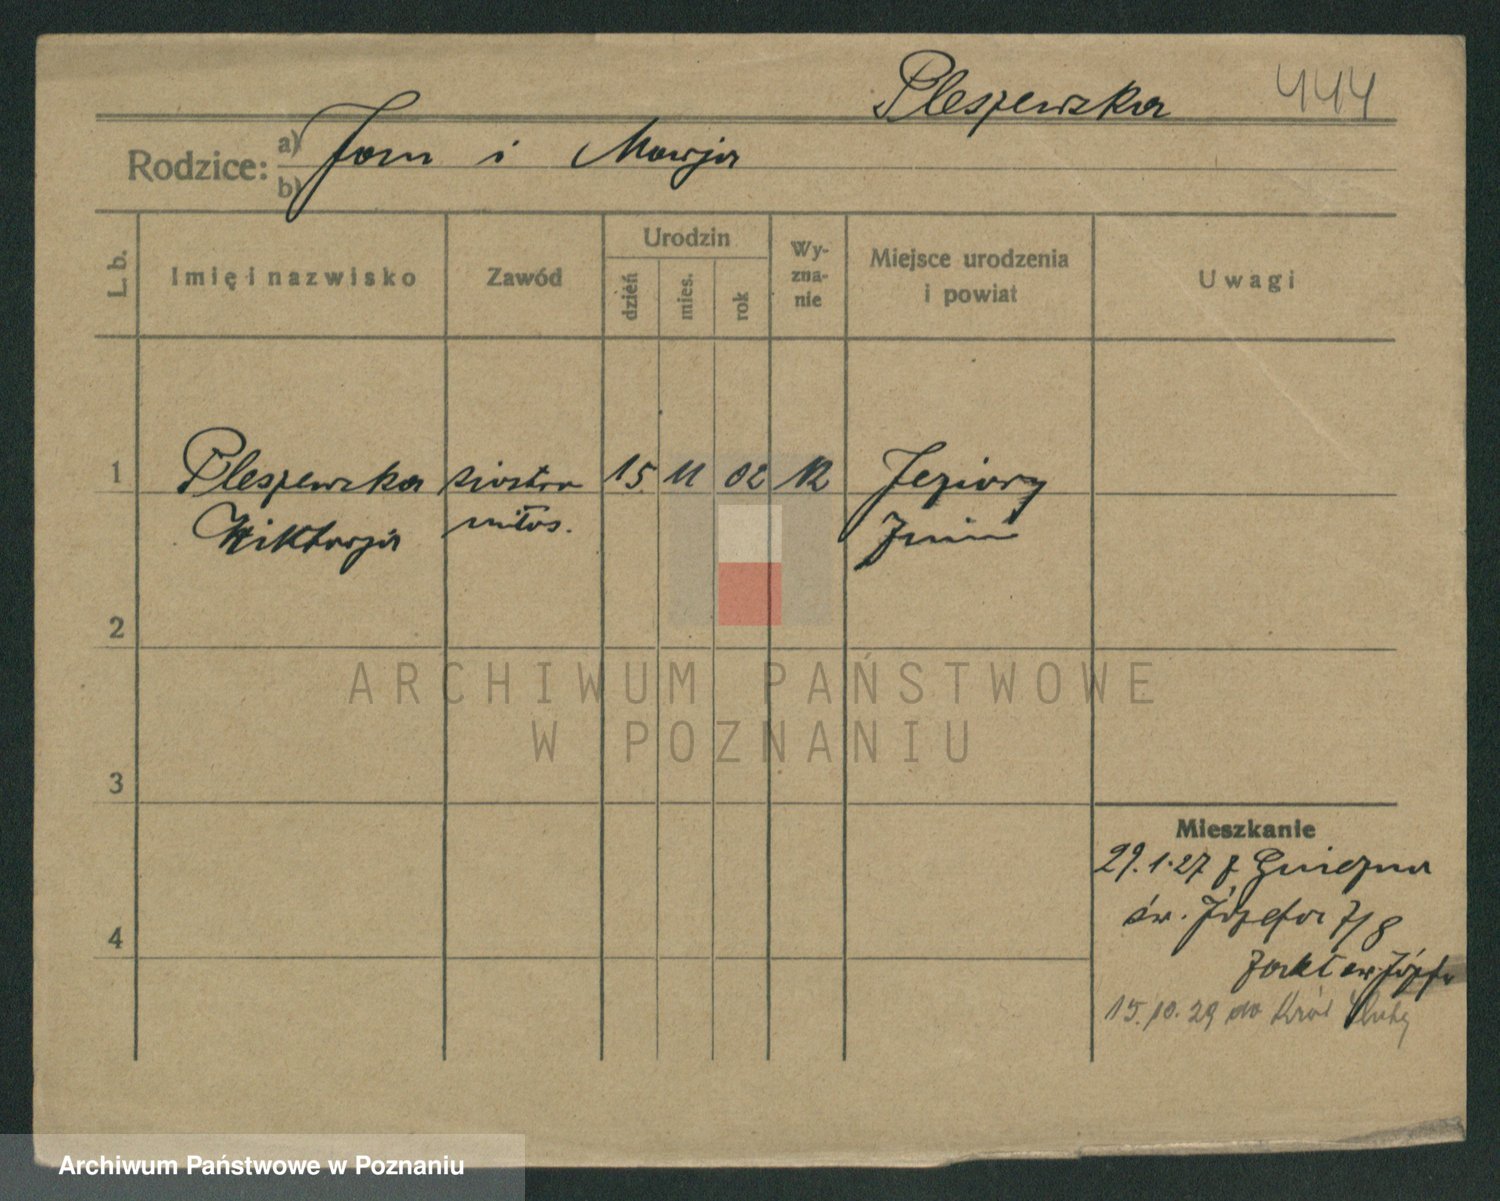 Pleszewska 444
Rodzice: a) Jan i Marja
b)
L. b. Imię i nazwisko Zawód Urodzin dzień mies. rok Wy-zna-nie Miejsce urodzenia i powiat Uwagi
1 Pleszewska siostra 15. 11 02 R Jeziory
Wiktorja miłos. Żnin
2
ARCHIWUM PAŃSTWOWE
W POZNANIU
3
Mieszkanie
29.1.27 z Gniezna
św. Józefa 7/8
4
Zakł św Józefa
15.10.29 do Król Huty
Archiwum Państwowe w Poznaniu